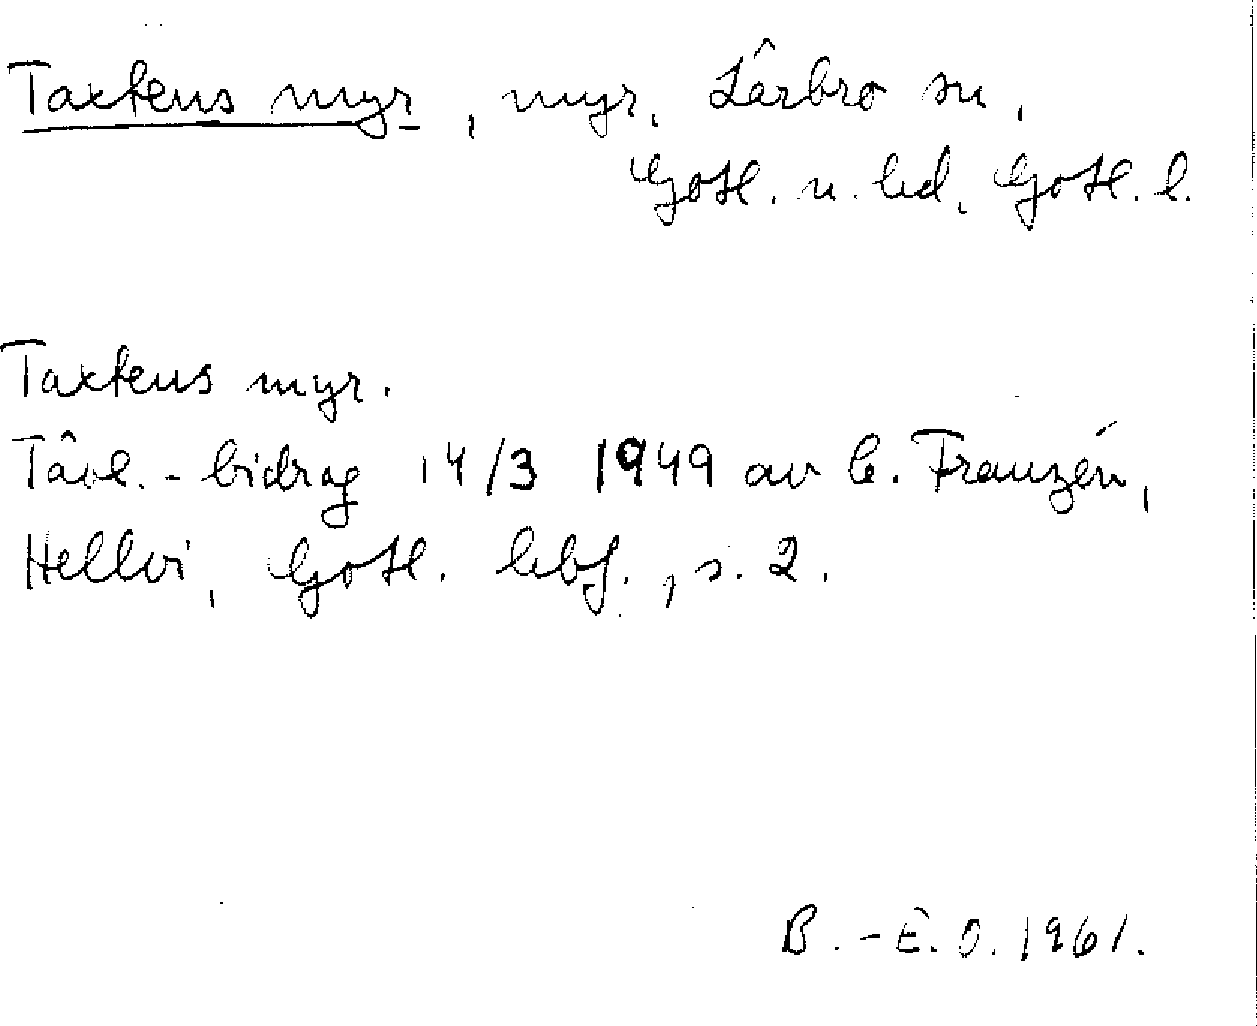 Taxtens myr, myr, Lärbro sn,
Gotl. n. hd, Gotl. l.
Taxtens myr.
Tävl.-bidrag 14/3 1949 av C. Franzén,
Hellvi, Gotl. hbf., s. 2.
B.-E. O. 1961.